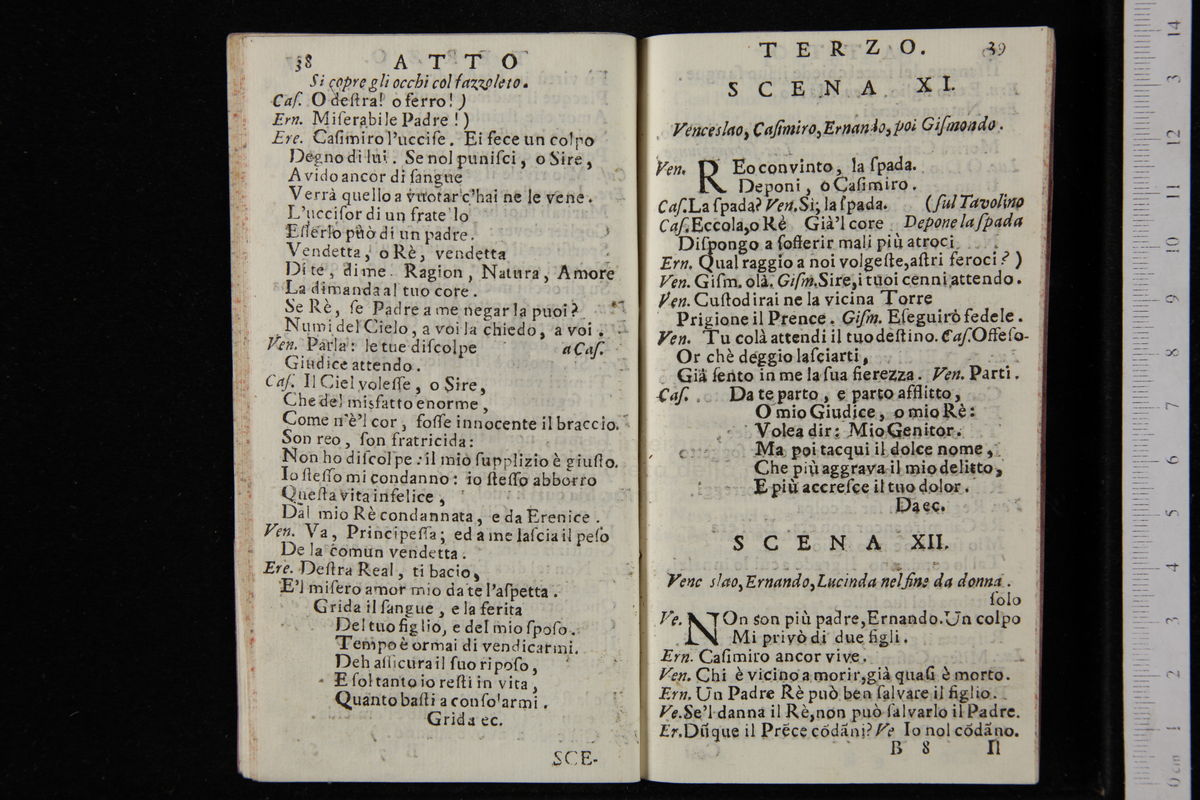 38 ATTO
Si çopre gli occhi col fazzoleto.
Caſ. O deſtra! o ferro!)
Ern. Miſerabile Padre!)
Ere. Caſimiro l'ucciſe. Ei fece un colpo
Degno di lui. Se nol puniſci, o Sire,
Avido ancor di ſangue
Verrà quello a vuotar c'hai ne le vene.
L'ucciſor di un frate'lo
Eſſerlo può di un padre.
Vendetta, o Rè, vendetta
Di te, di me. Ragion, Natura, Amore
La dimanda al tuo core.
Se Rè, ſe Padre a me negar la puoi?
Numi del Cielo, a voi la chiedo, a voi.
Ven. Parla: le tue diſcolpe a Caſ.
Giudice attendo.
Caſ. Il Ciel voleſſe, o Sire,
Che del misfatto enorme,
Come n'è'l cor, foſſe innocente il braccio.
Son reo, ſon fratricida:
Non ho diſcolpe: il mio ſupplizio è giuſto.
Io ſteſſo mi condanno: io ſteſſo abborro
Queſta vita infelice,
Dal mio Rè condannata, e da Erenice.
Ven. Va, Principeſſa; ed a me laſcia il peſo
De la comun vendetta.
Ere. Deſtra Real, ti bacio,
E'l miſero amor mio da te l'aſpetta.
Grida il ſangue, e la ferita
Del tuo figlio, e del mio ſpoſo.
Tempo è ormai di vendicarmi.
Deh aſſicura il ſuo ripoſo,
E ſol tanto io reſti in vita,
Quanto baſti a conſo'armi.
Grida ec.
SCE-
TERZO. 39
SCENA XI.
Venceslao, Caſimiro, Ernando, poi Giſmondo.
Ven. REo convinto, la ſpada.
Deponi, o Caſimiro.
Caſ. La ſpada? Ven. Sì; la ſpada. (ſul Tavolino
Caſ. Eccola, o Rè Già'l core Depone la ſpada
Diſpongo a ſofferir mali più atroci
Ern. Qual raggio a noi volgeſte, aſtri feroci?)
Ven. Giſm. olà. Giſm. Sire, i tuoi cenni attendo.
Ven. Cuſtodirai ne la vicina Torre
Prigione il Prence. Giſm. Eſeguirò fedele.
Ven. Tu colà attendi il tuo deſtino. Caſ. Offeſo-
Or chè deggio laſciarti,
Già ſento in me la ſua fierezza. Ven. Parti.
Caſ. Da te parto, e parto afflitto,
O mio Giudice, o mio Rè:
Volea dir: Mio Genitor.
Ma poi tacqui il dolce nome,
Che più aggrava il mio delitto,
E più accreſce il tuo dolor.
Da ec.
SCENA XII.
Venc slao, Ernando, Lucinda nel fine da donna.
ſolo
Ve. NOn son più padre, Ernando. Un colpo
Mi privò di due figli.
Ern. Caſimiro ancor vive.
Ven. Chi è vicino a morir, già quaſi è morto.
Ern. Un Padre Rè può ben ſalvare il figlio.
Ve. Se'l danna il Rè, non può ſalvarlo il Padre.
Er. Dũque il Prēce cōdāni? Ve Io nol cōdāno.
B 8 Il